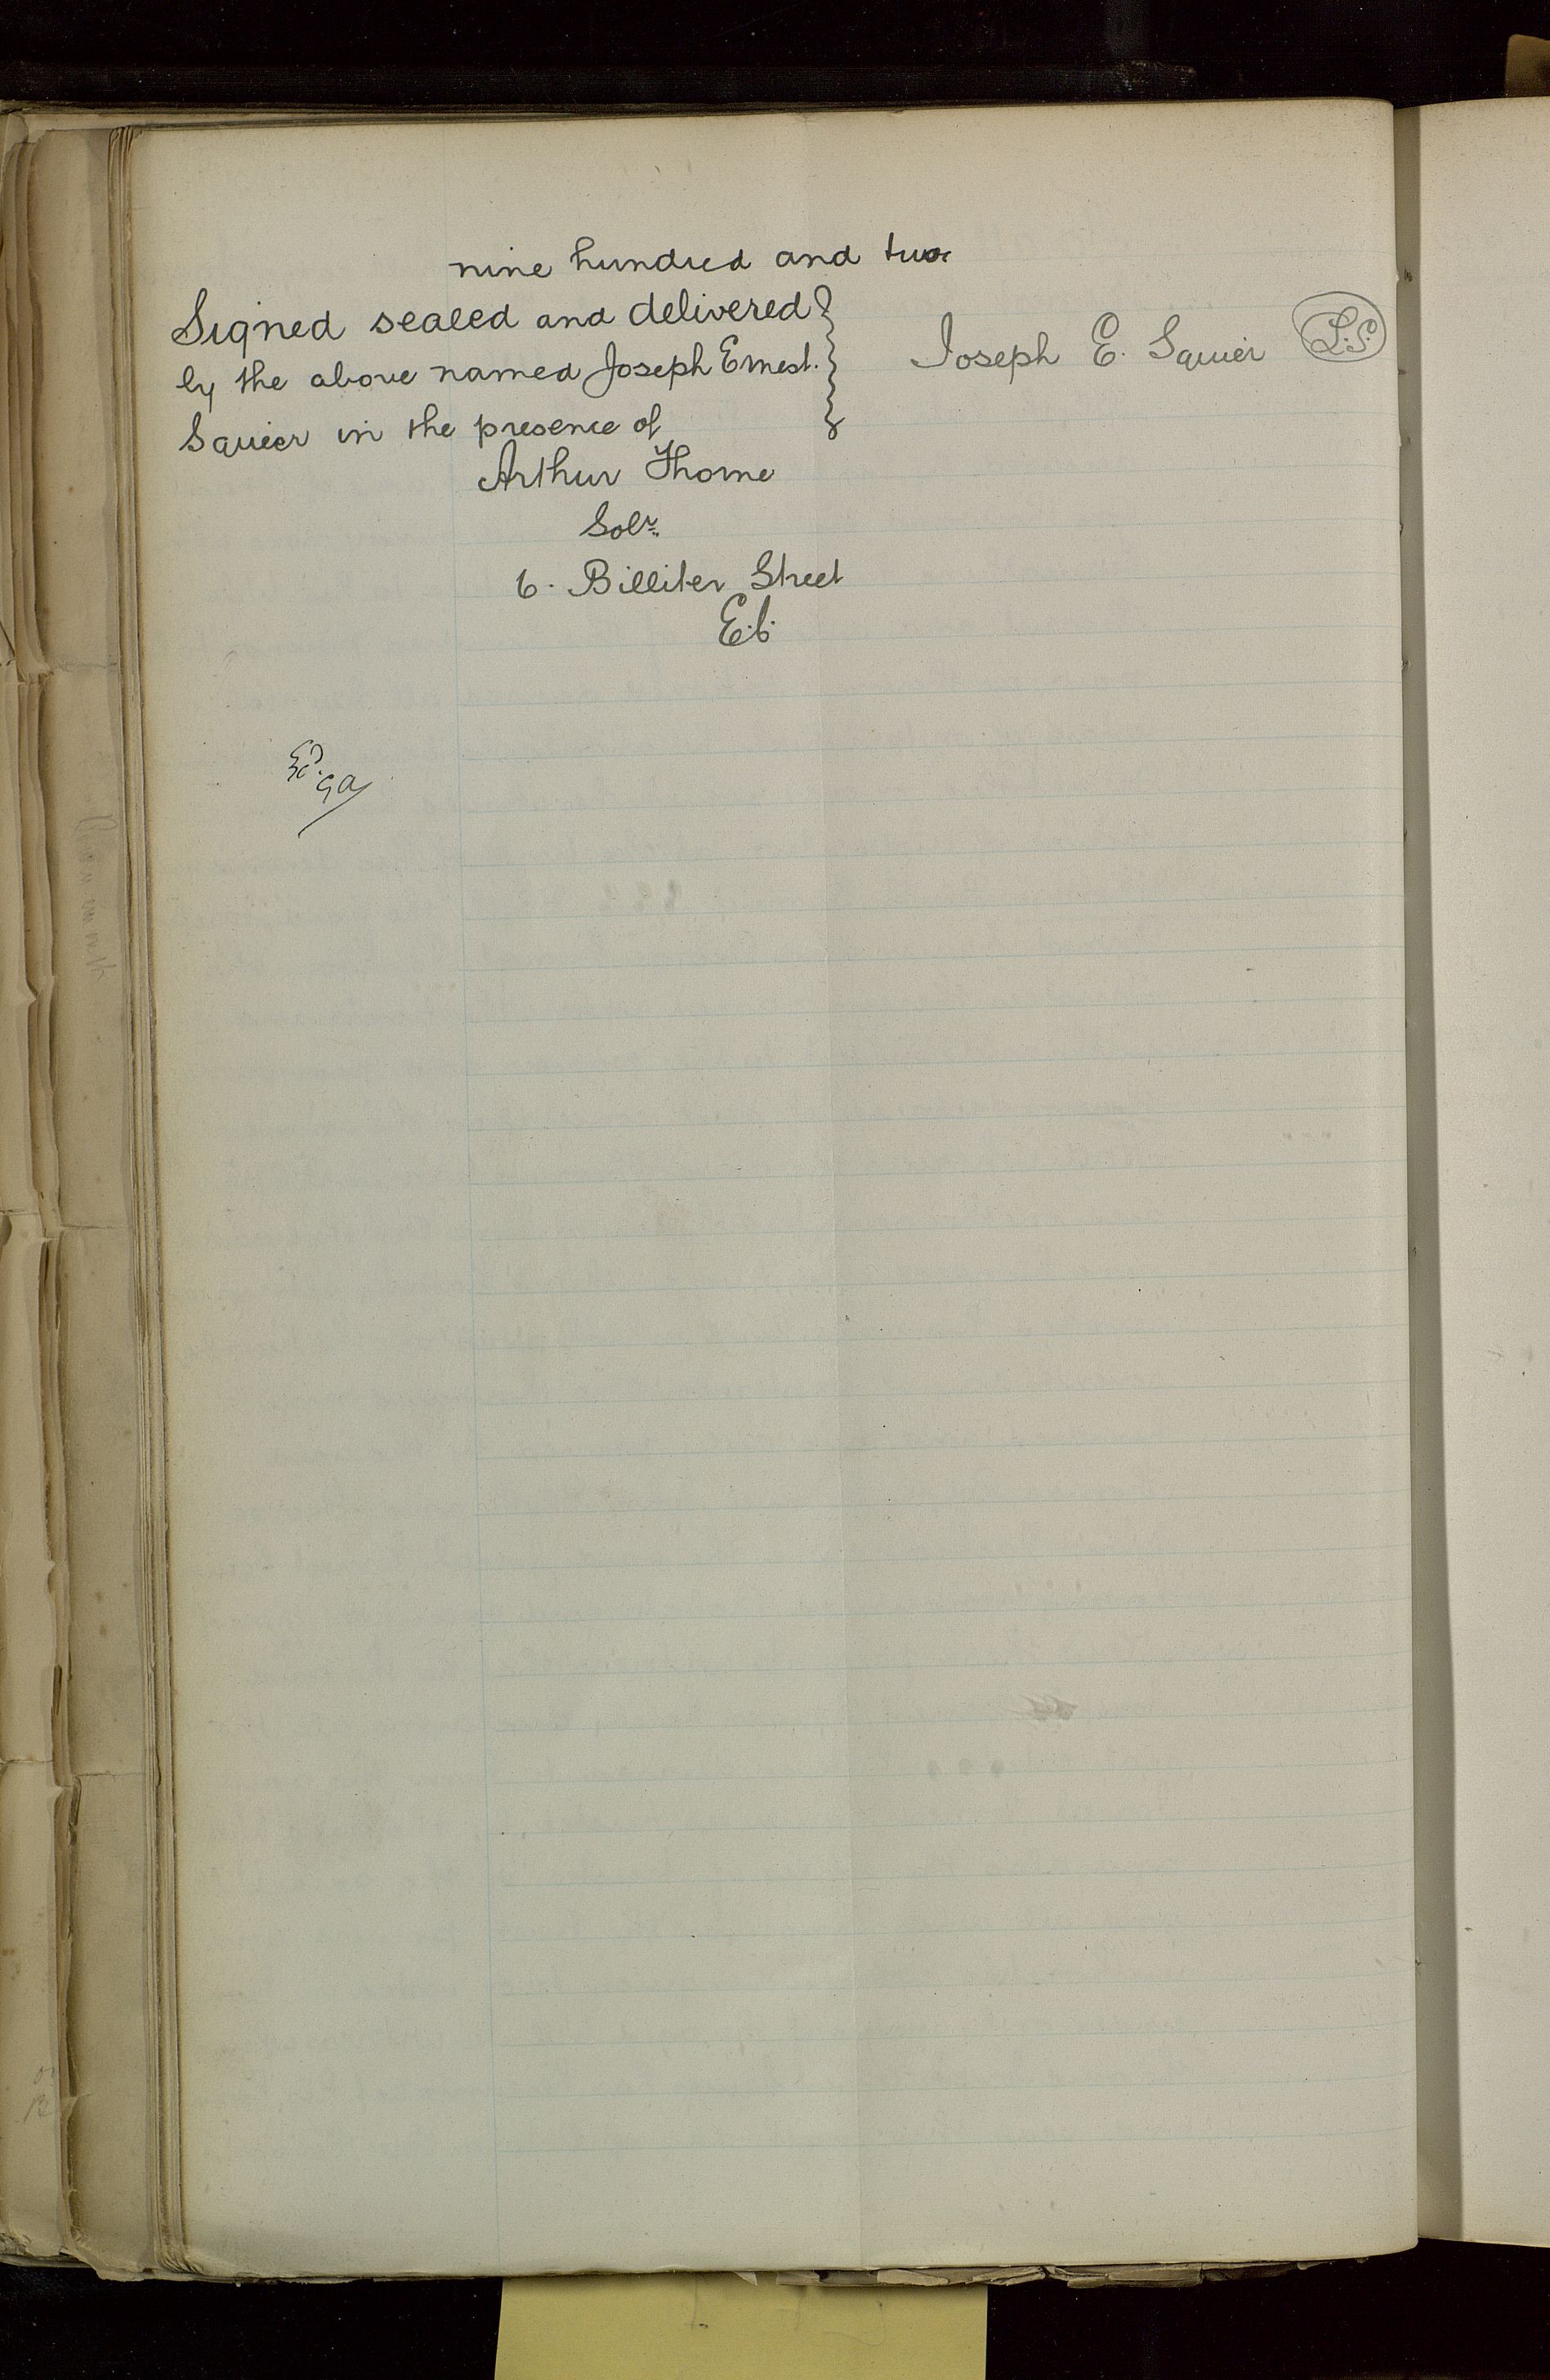 nine hundred and two
Signed sealed and delivered
by the above named Joseph Ernest
Squier in the presence of
Joseph E. Squier L.S.
Arthur Thorne
Solr.
6. Billiter Street
E.C.